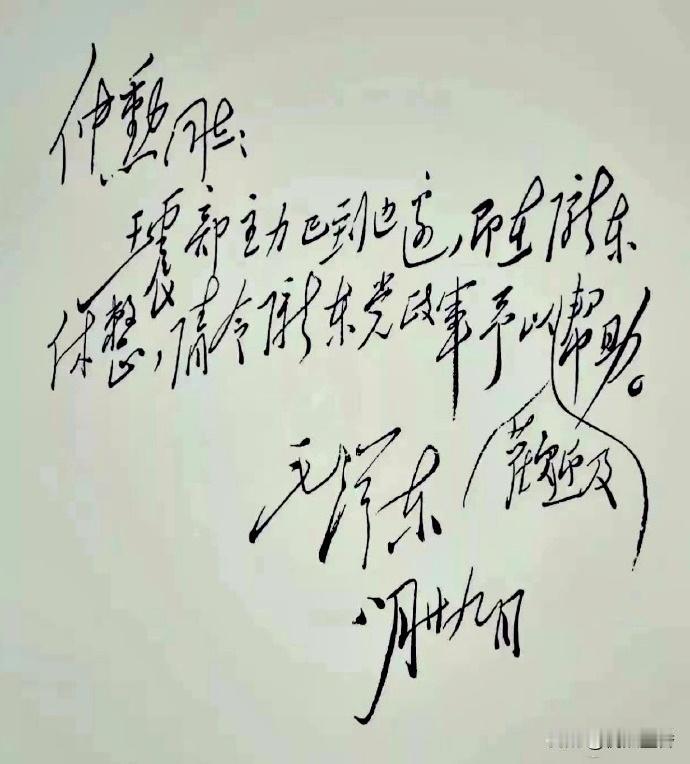 仲勳同志:
王震部主力已到边区,即在陇东
休整,请令陇东党政军予以帮助。
欢迎及
毛泽东
八月廿九日